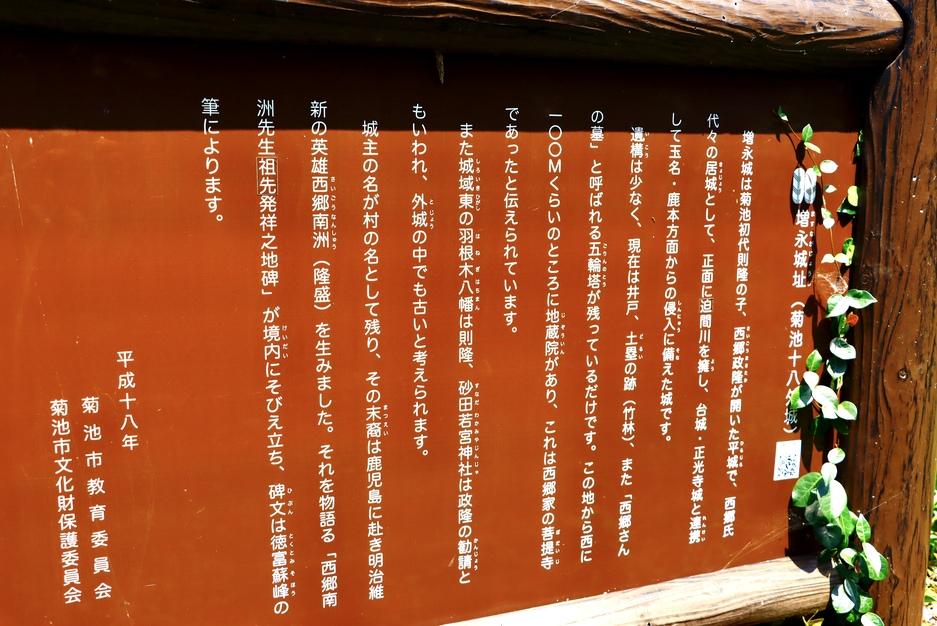 増永城址（菊池十八外城）
増永城は菊池初代則隆の子、西郷政隆が開いた平城で、西郷氏
代々の居城として、正面に迫間川を擁し、台城・正光寺城と連携
して玉名・鹿本方面からの侵入に備えた城です。
遺構は少なく、現在は井戸、土塁の跡（竹林）、また「西郷さん
の墓」と呼ばれる五輪塔が残っているだけです。この地から西に
一〇〇Ｍくらいのところに地蔵院があり、これは西郷家の菩提寺
であったと伝えられています。
また城域東の羽根木八幡は則隆、砂田若宮神社は政隆の勧請と
もいわれ、外城の中でも古いと考えられます。
城主の名が村の名として残り、その末裔は鹿児島に赴き明治維
新の英雄西郷南洲（隆盛）を生みました。それを物語る「西郷南
洲先生祖先発祥之地碑」が境内にそびえ立ち、碑文は徳富蘇峰の
筆によります。
平成十八年
菊池市教育委員会
菊池市文化財保護委員会